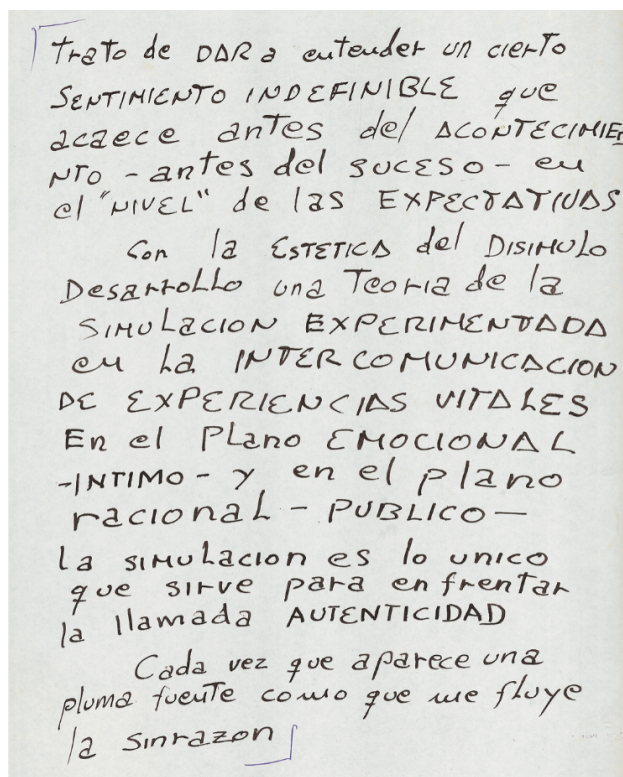 trato de DAR a entender un cierto
SENTIMIENTO INDEFINIBLE que
acaece antes del ACONTECIMIE
NTO - antes del SUCESO - en
el "NIVEL" de las EXPECTATIVAS
Con la ESTETICA del DISIMULO
Desarrollo una Teoria de la
SIMULACION EXPERIMENTADA
en La INTERCOMUNICACION
DE EXPERIENCIAS VITALES
En el PLano EMOCIONAL
- INTIMO - y en el plano
racionaL - PUBLICO -
la simulacion es lo unico
que sirve para enfrentar
la llamada AUTENTICIDAD
Cada vez que aparece una
pluma fuente como que me fluye
la sinrazon